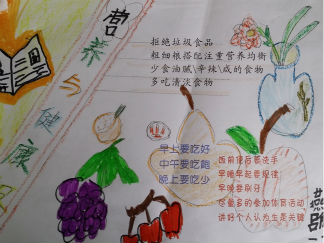 营养与健康
拒绝垃圾食品
粗细粮搭配注重营养均衡
少食油腻\辛辣\咸的食物
多吃清淡食物
早上要吃好
中午要吃饱
晚上要吃少
饭前便后要洗手
早睡早起要规律
早晚要刷牙
尽量多的参加体育活动
讲好个人认为生是关键